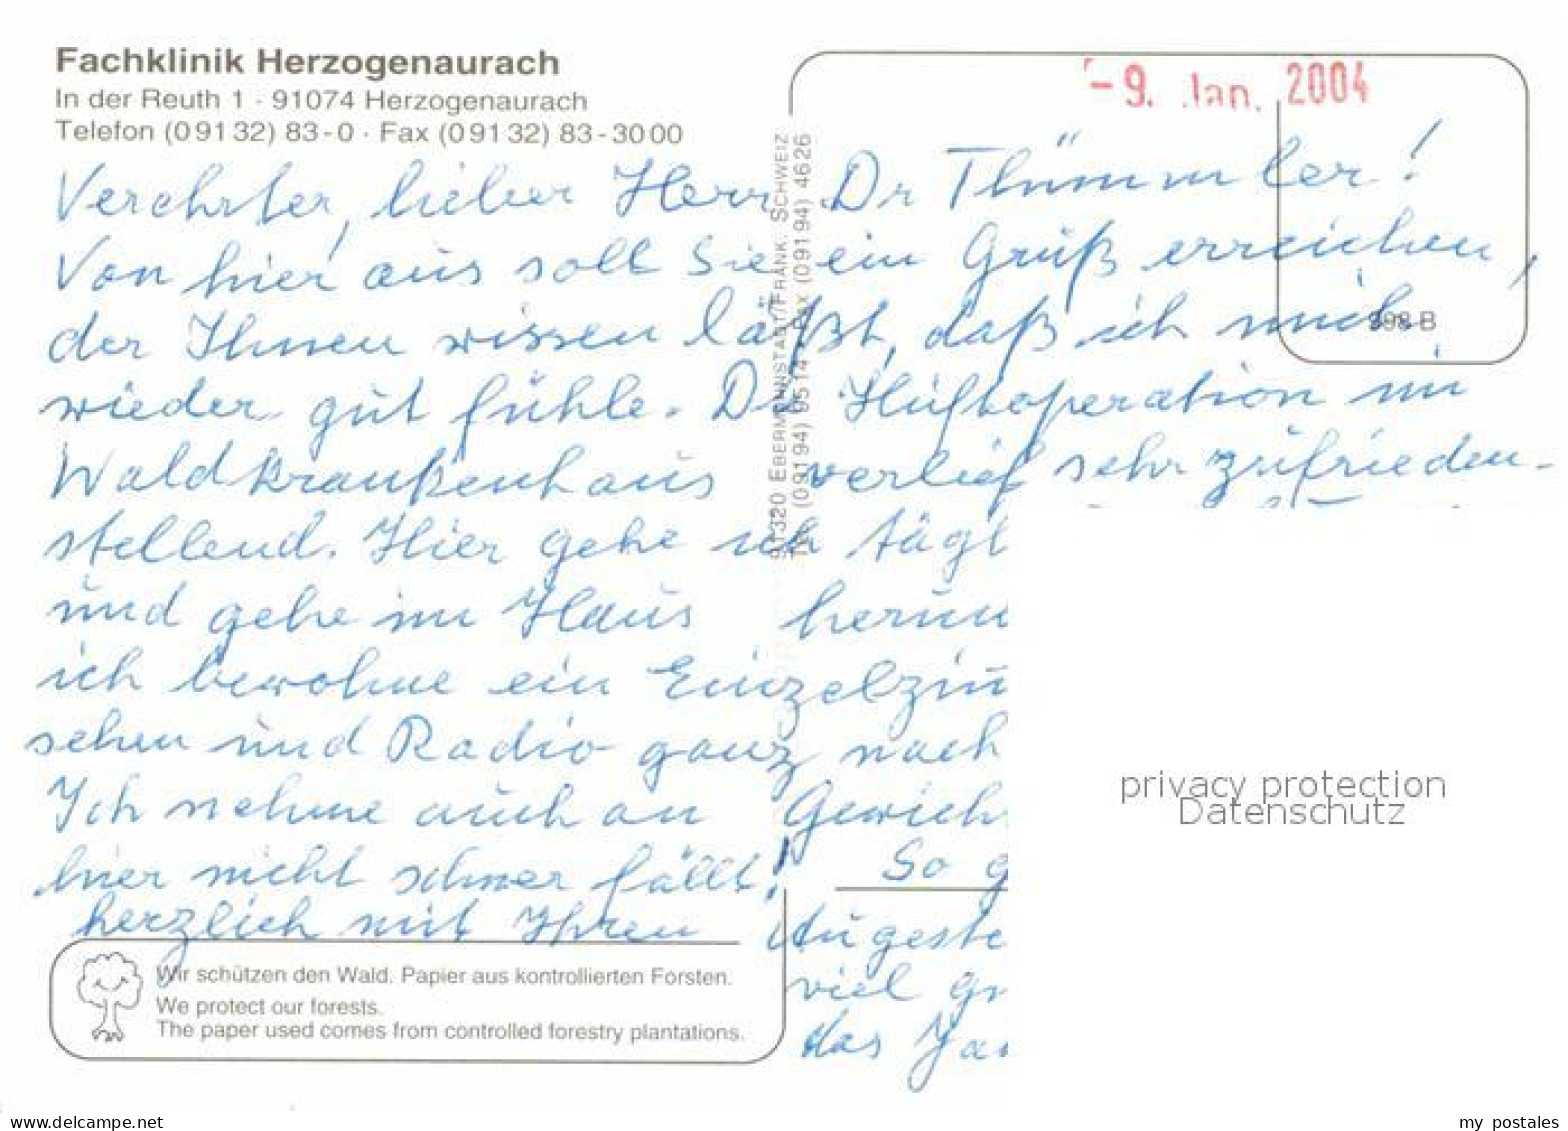 Fachklinik Herzogenaurach
In der Reuth 1 · 91074 Herzogenaurach
Telefon (0 91 32) 83 - 0 · Fax (0 91 32) 83 - 30 00
- 9. Jan. 2004
Verehrter, lieber Herr Dr Thümmler!
Von hier aus soll Sie ein Gruß erreichen,
der Ihnen wissen läßt, daß ich mich
wieder gut fühle. Die Hüftoperation im
Waldkrankenhaus verlief sehr zufrieden-
stellend. Hier gehe ich tägl
und gehe im Haus herum
ich bewohne ein Einzelzim
sehen und Radio ganz nach
Ich nehme auch an Gewich
hier nicht schwer fällt! So g
herzlich mit Ihren Angeste
viel gr
das Ja
998 B
91320 EBERMANNSTADT/FRÄNK. SCHWEIZ
Tel. (0 91 94) 95 14 · Fax (0 91 94) 46 26
privacy protection
Datenschutz
Wir schützen den Wald. Papier aus kontrollierten Forsten.
We protect our forests.
The paper used comes from controlled forestry plantations.
delcampe.net
my_postales